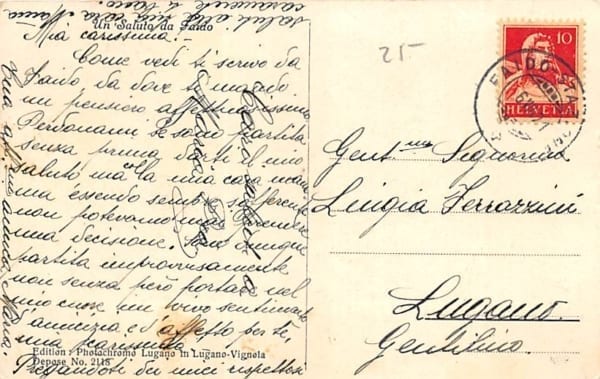 Un Saluto da Faido
Mia carissima:-
Come vedi ti scrivo da
Faido da dove ti mando
un pensiero affettuosissimo.
Perdonami se sono partita
senza prima darti il mio
saluto ma la mia cara mam-
ma essendo sempre sofferente
non potevamo mai prendere
una decisione. Sono dunque
partita improvvisamente
non senza però portare nel
mio cuore un vivo sentimento
d'amicizia e d'affetto per te,
mia carissima
Edition: Photochromo Lugano in Lugano-Vignola
Depose No. 2118
Pregandoti dei miei rispettosi
saluti alla
Tua aff.ma amica Maria.
25-
10
HELVETIA
FAIDO
Gent.ma Signorina
Luigia Ferrazzini
Lugano.
Gentilino